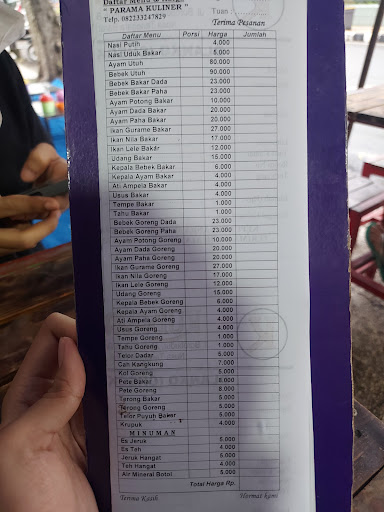 Daftar Menu & Harga
" PARAMA KULINER "
Telp. 082233247829
Tuan : ..............
Terima Pesanan
Daftar Menu Porsi Harga Jumlah
Nasi Putih 4.000
Nasi Uduk Bakar 5.000
Ayam Utuh 80.000
Bebek Utuh 90.000
Bebek Bakar Dada 23.000
Bebek Bakar Paha 23.000
Ayam Potong Bakar 10.000
Ayam Dada Bakar 20.000
Ayam Paha Bakar 20.000
Ikan Gurame Bakar 27.000
Ikan Nila Bakar 17.000
Ikan Lele Bakar 12.000
Udang Bakar 15.000
Kepala Bebek Bakar 6.000
Kepala Ayam Bakar 4.000
Ati Ampela Bakar 4.000
Usus Bakar 4.000
Tempe Bakar 1.000
Tahu Bakar 1.000
Bebek Goreng Dada 23.000
Bebek Goreng Paha 23.000
Ayam Potong Goreng 10.000
Ayam Dada Goreng 20.000
Ayam Paha Goreng 20.000
Ikan Gurame Goreng 27.000
Ikan Nila Goreng 17.000
Ikan Lele Goreng 12.000
Udang Goreng 15.000
Kepala Bebek Goreng 6.000
Kepala Ayam Goreng 4.000
Ati Ampela Goreng 4.000
Usus Goreng 4.000
Tempe Goreng 1.000
Tahu Goreng 1.000
Telor Dadar 5.000
Cah Kangkung 7.000
Kol Goreng 5.000
Pete Bakar 8.000
Pete Goreng 8.000
Terong Bakar 5.000
Terong Goreng 5.000
Telor Puyuh Bakar 5.000
Krupuk 4.000
MINUMAN
Es Jeruk 5.000
Es Teh 4.000
Jeruk Hangat 5.000
Teh Hangat 4.000
Air Mineral Botol 5.000
Total Harga Rp.
Terima Kasih Hormat kami